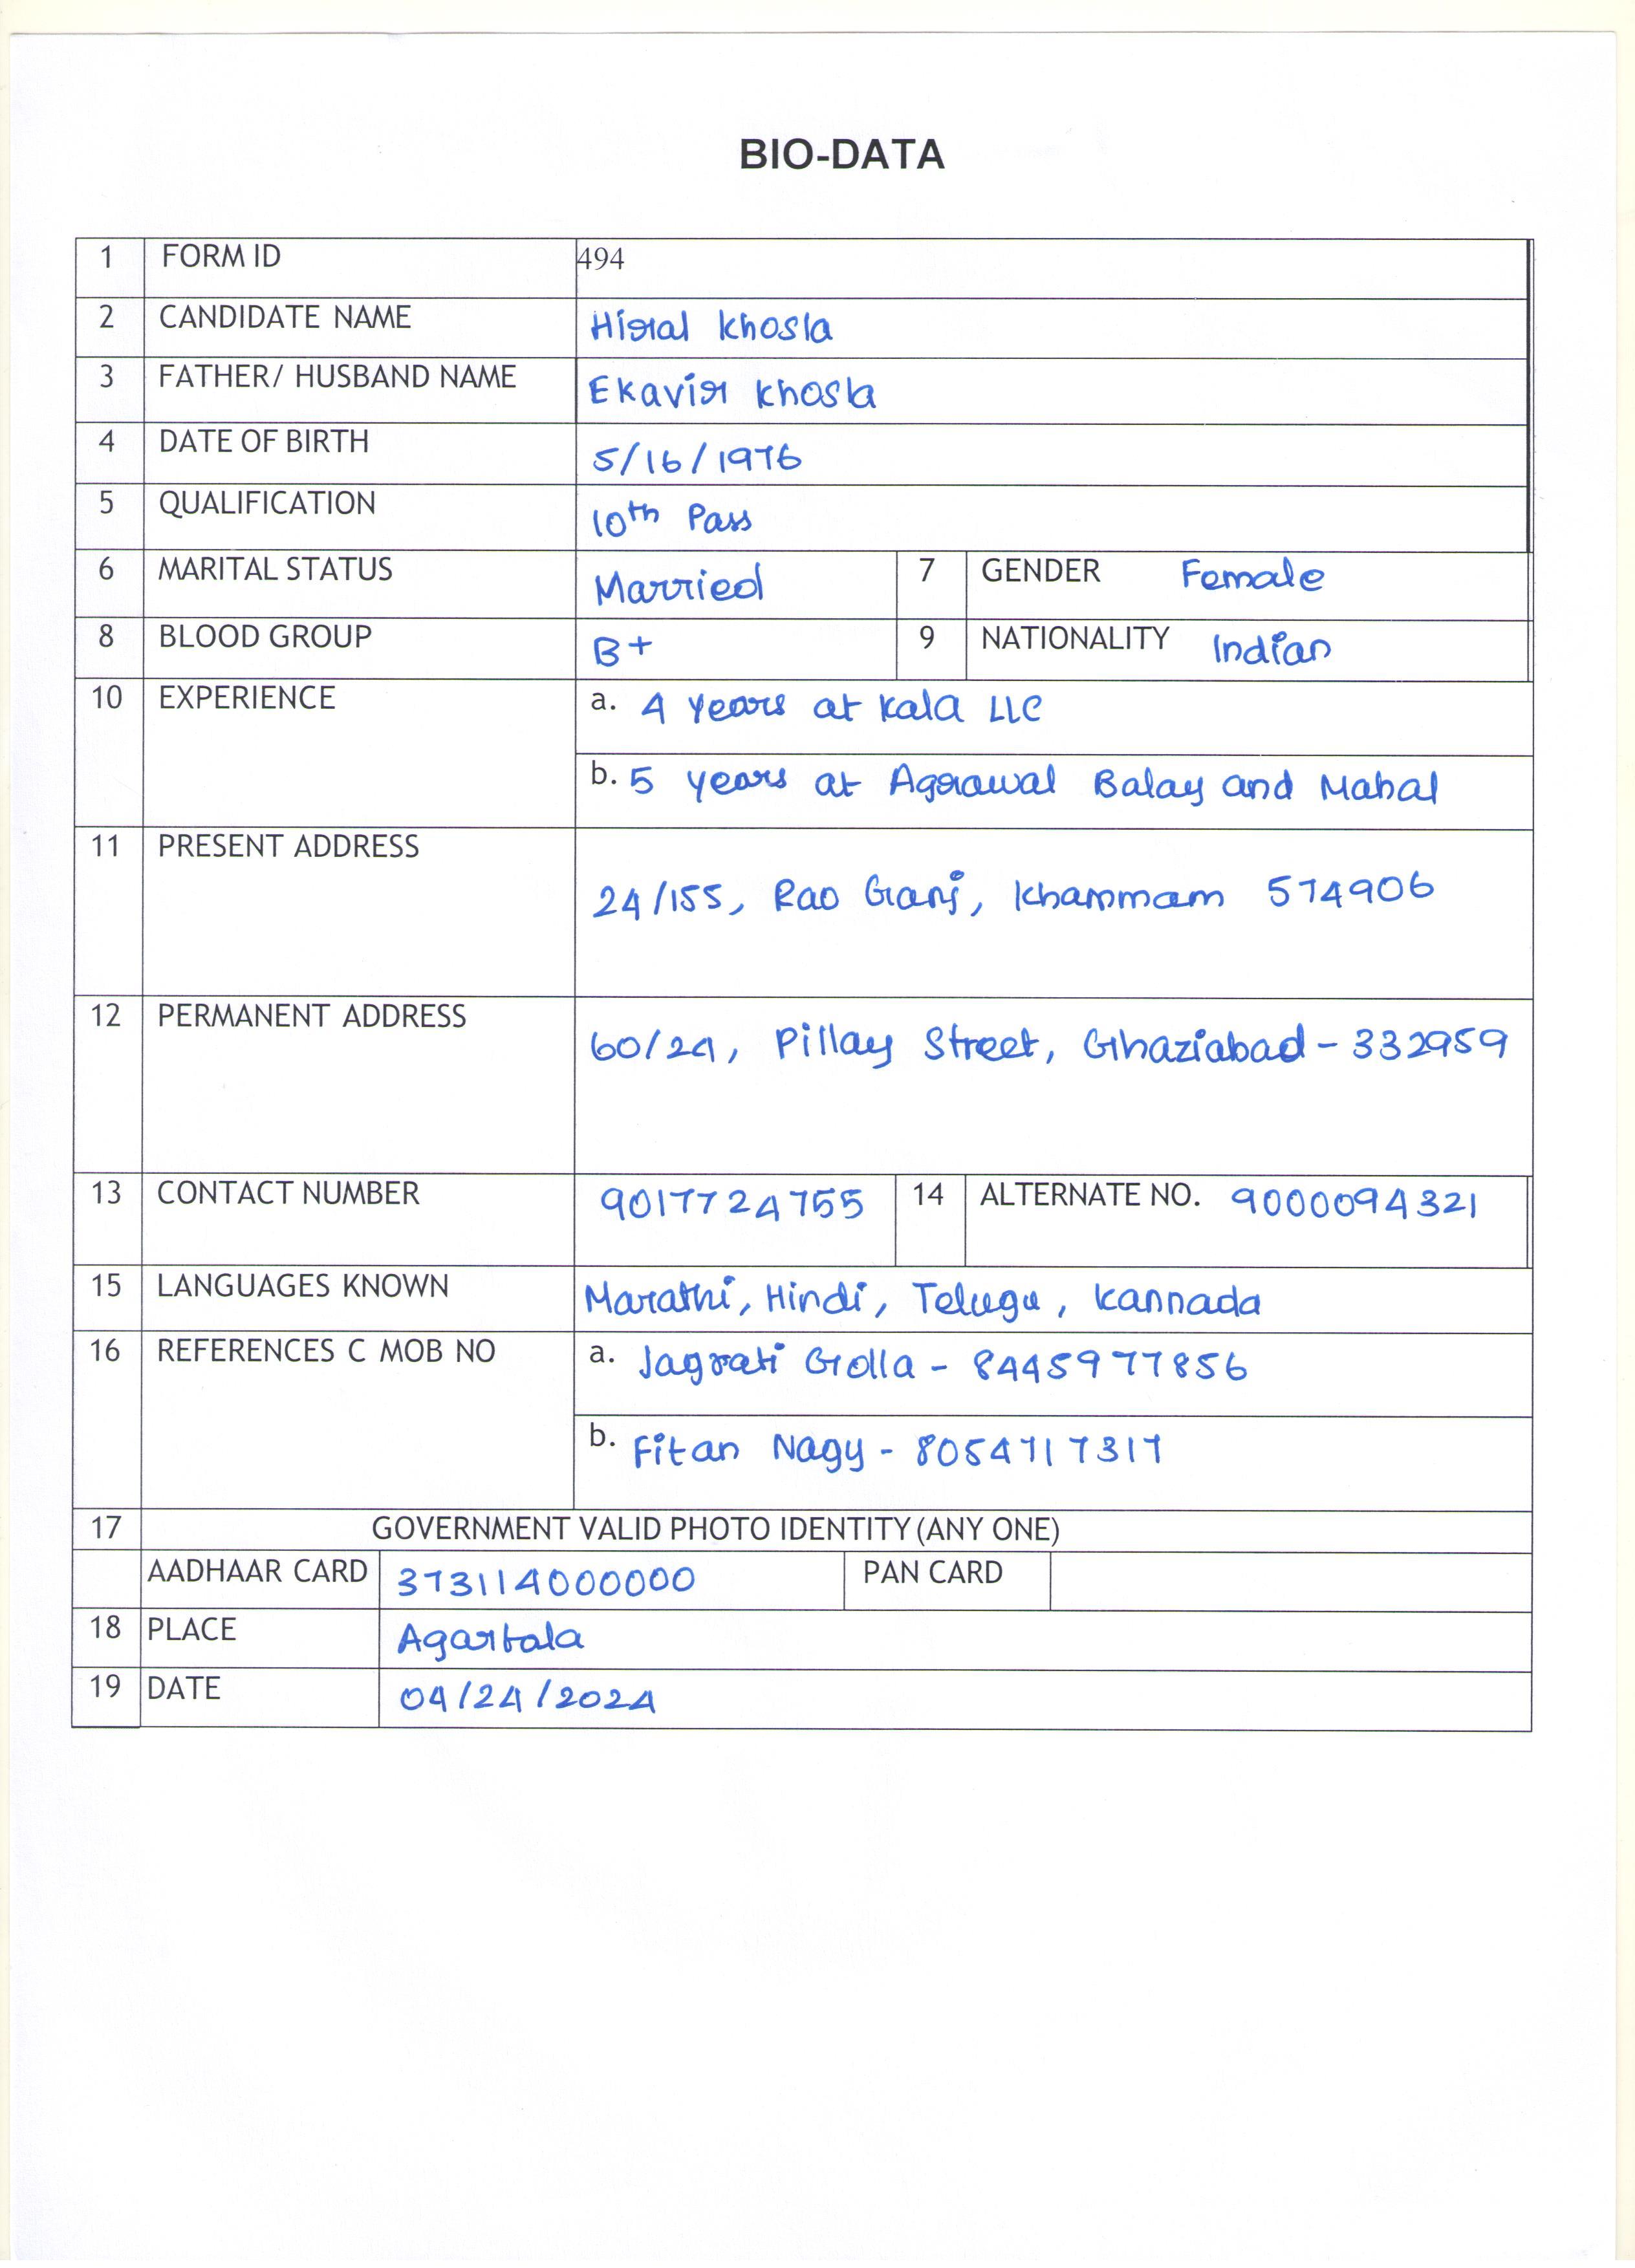 BIO-DATA
1 FORM ID 494
2 CANDIDATE NAME Hiral Khosla
3 FATHER/ HUSBAND NAME Ekavir Khosla
4 DATE OF BIRTH 5/16/1976
5 QUALIFICATION 10th Pass
6 MARITAL STATUS Married 7 GENDER Female
8 BLOOD GROUP B+ 9 NATIONALITY Indian
10 EXPERIENCE a. 4 years at Kala LLC
b. 5 years at Agrawal Balay and Mahal
11 PRESENT ADDRESS
24/155, Rao Ganj, Khammam 574906
12 PERMANENT ADDRESS
60/24, Pillay Street, Ghaziabad - 332959
13 CONTACT NUMBER 9017724755 14 ALTERNATE NO. 9000094321
15 LANGUAGES KNOWN Marathi, Hindi, Telugu, Kannada
16 REFERENCES C MOB NO a. Jagrati Golla - 8445977856
b. Fitan Nagy - 8054717317
17 GOVERNMENT VALID PHOTO IDENTITY (ANY ONE)
AADHAAR CARD 373114000000 PAN CARD
18 PLACE Agartala
19 DATE 04/24/2024